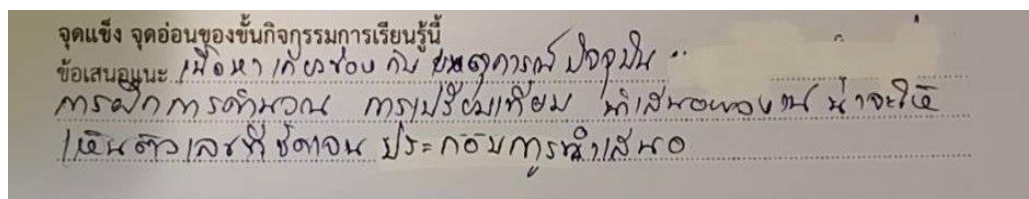 จุดแข็ง จุดอ่อนของขั้นกิจกรรมการเรียนรู้นี้
ข้อเสนอแนะ เนื้อหาเกี่ยวข้องกับเหตุการณ์ปัจจุบัน
การฝึกการคำนวณ การเปรียบเทียบ นำเสนอผลงาน น่าจะให้
เห็นตัวเลขที่ชัดเจน ประกอบการนำเสนอ